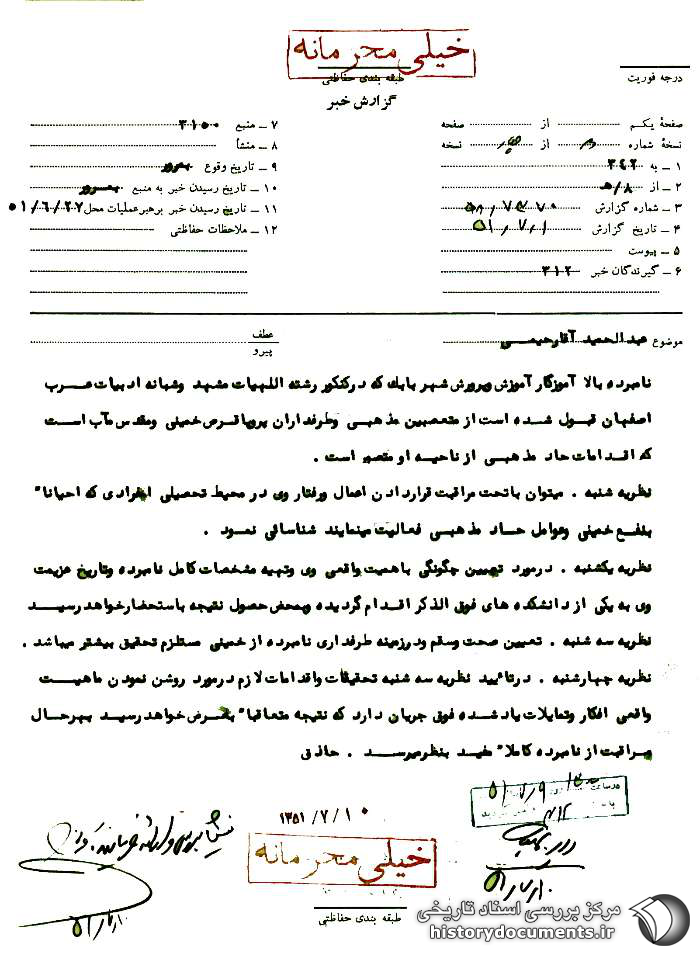 خیلی محرمانه
طبقه بندی حفاظتی
درجه فوریت
گزارش خبر
صفحهٔ یکم از صفحه
نسخهٔ شماره از نسخه
۱ ـ به ۳۴۲
۲ ـ از ۸/ه
۳ ـ شماره گزارش
۴ ـ تاریخ گزارش ۵۱/۷/۱
۵ ـ پیوست
۶ ـ گیرندگان خبر ۳۱۲
۷ ـ منبع ۳۱۵۰
۸ ـ منشأ
۹ ـ تاریخ وقوع بمرور
۱۰ ـ تاریخ رسیدن خبر به منبع بمرور
۱۱ ـ تاریخ رسیدن خبر برهبرعملیات محل ۵۱/۶/۲۷
۱۲ ـ ملاحظات حفاظتی
موضوع عبدالحمید آقارحیمی
عطف
پیرو
نامبرده بالا آموزگار آموزش وپرورش شهر بابك که درکنکور رشته اللهیات مشهد وشبانه ادبیات عرب
اصفهان قبول شده است از متعصبین مذهبی وطرفداران پروپاقرص خمینی ومقدس مآب است
که اقدامات حاد مذهبی از ناحیه او متصور است .
نظریه شنبه . میتوان باتحت مراقبت قراردادن اعمال ورفتار وی در محیط تحصیلی افرادی که احیانا"
بنفع خمینی وعوامل حساد مذهبی فعالیت مینمایند شناسائی نمود .
نظریه یکشنبه . درمورد تعیین چگونگی باهمیت واقعی وی وتهیه مشخصات کامل نامبرده وتاریخ عزیمت
وی به یکی از دانشکده های فوق الذکر اقدام گردیده وبمحض حصول نتیجه باستحضارخواهد رسید
نظریه سه شنبه . تعیین صحت وسقم ودرزمینه طرفداری نامبرده از خمینی مستلزم تحقیق بیشتر میباشد .
نظریه چهارشنبه . درتائید نظریه سه شنبه تحقیقات واقدامات لازم درمورد روشن نمودن ماهیت
واقعی افکار وتمایلات یاد شده فوق جریان دارد که نتیجه متعاقبا" بعرض خواهد رسید بهرحال
مراقبت از نامبرده کاملا" مفید بنظرمیرسد . حاذق
۱۳۵۱/۷/۱۰
خیلی محرمانه
طبقه بندی حفاظتی
مرکز بررسی اسناد تاریخی
historydocuments.ir